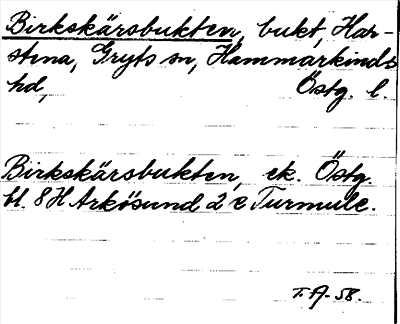 Birkskärsbukten, bukt, Har-
stena, Gryts sn, Hammarkinds
hd, Östg. l.
Birkskärsbukten, ek. Östg.
bl. 8 H Arkösund 2 c Turmulc.
T. A-58.